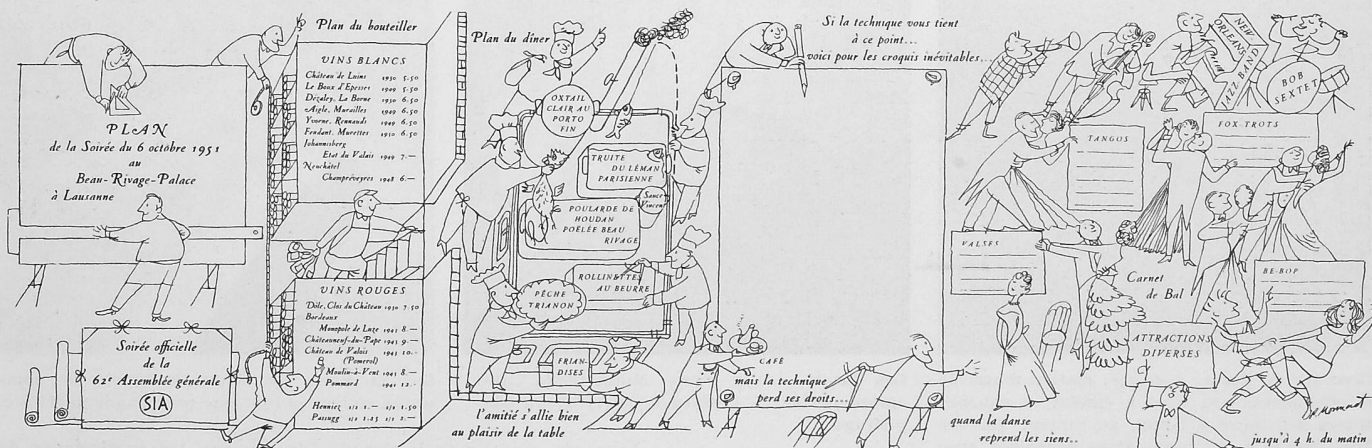 PLAN
de la Soirée du 6 octobre 1951
au
Beau-Rivage-Palace
à Lausanne
Soirée officielle
de la
62e Assemblée générale
SIA
Plan du bouteiller
VINS BLANCS
Château de Luins 1950 5.50
Le Boux d'Epesses 1949 5.50
Dézaley, La Borne 1950 6.50
Aigle, Murailles 1949 6.50
Yvorne, Rennauds 1949 6.50
Fendant, Murettes 1950 6.50
Johannisberg
Etat du Valais 1949 7.—
Neuchâtel
Champréveyres 1948 6.—
VINS ROUGES
Dôle, Clos du Château 1950 7.50
Bordeaux
Monopole de Luze 1945 8.—
Châteauneuf-du-Pape 1945 9.—
Château de Valois 1945 10.—
(Pomerol)
Moulin-à-Vent 1945 8.—
Pommard 12.—
Henniez 1/2 1.— 1/1 1.50
Passugg 1/2 1.25 1/1 2.—
Plan du dîner
OXTAIL
CLAIR AU
PORTO
FIN
TRUITE
DU LÉMAN
PARISIENNE
Sauce
Vincent
POULARDE DE
HOUDAN
POËLÉE BEAU
RIVAGE
ROLLINETTES
AU BEURRE
PÊCHE
TRIANON
FRIAN-
DISES
CAFÉ
l'amitié s'allie bien
au plaisir de la table
Si la technique vous tient
à ce point...
voici pour les croquis inévitables...
mais la technique
perd ses droits...
quand la danse
reprend les siens..
NEW
ORLEANS
JAZZ BAND
BOB
SEXTET
TANGOS
FOX-TROTS
VALSES
Carnet
de Bal
BE-BOP
ATTRACTIONS
DIVERSES
jusqu'à 4 h. du matin